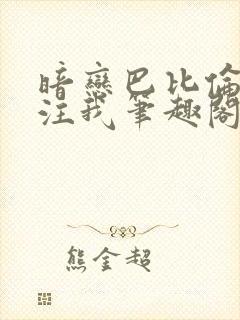 暗戀巴比倫
注我筆趣閣
熊金超